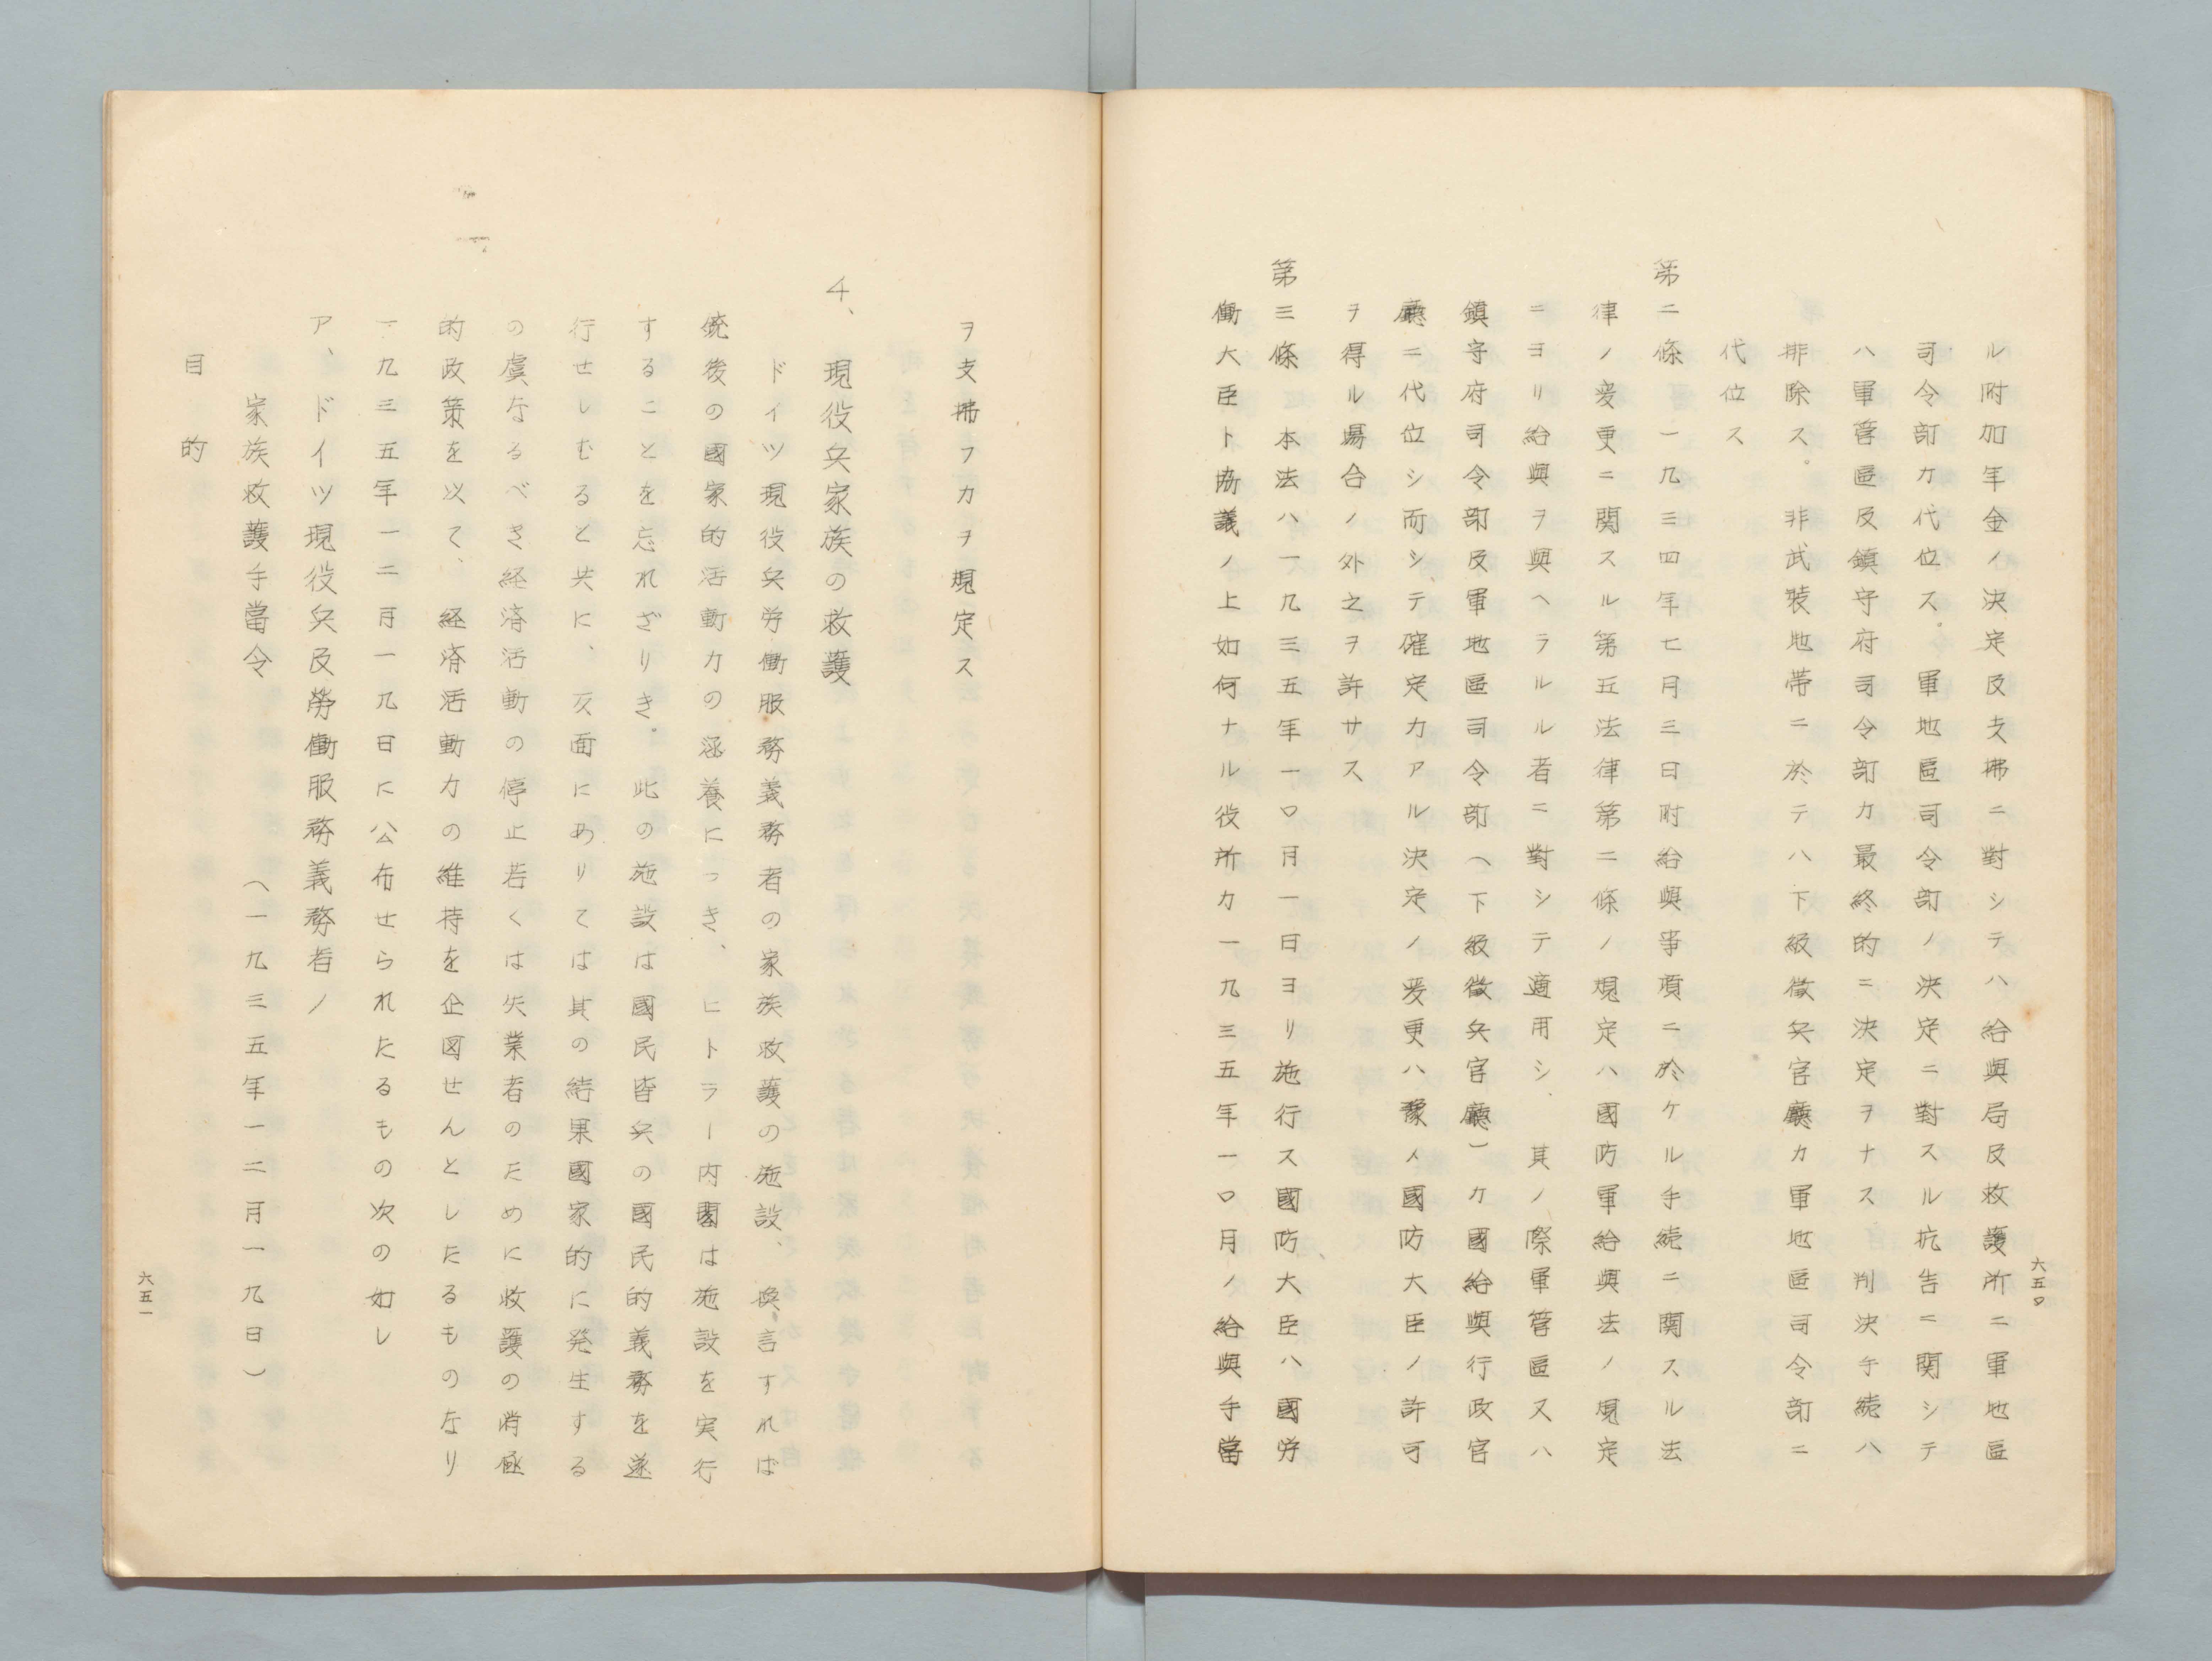 ル附加年金ノ決定及支拂ニ對シテハ給與局及救護所ニ軍地區
司令部カ代位ス。軍地區司令部ノ決定ニ對スル抗告ニ關シテ
ハ軍管區及鎮守府司令部カ最終的ニ決定ヲナス　判決手続ハ
排除ス。非武裝地帯ニ於テハ下級徴兵官廳カ軍地區司令部ニ
代位ス
第二條　一九三四年七月三日附給與事項ニ於ケル手続ニ関スル法
律ノ変更ニ関スル第五法律第二條ノ規定ハ國防軍給與法ノ規定
ニヨリ給與ヲ與ヘラルル者ニ對シテ適用シ、其ノ際軍管區又ハ
鎮守府司令部及軍地區司令部（下級徴兵官廳）カ國給與行政官
廳ニ代位シ而シテ確定力アル決定ノ変更ハ豫メ國防大臣ノ許可
ヲ得ル場合ノ外之ヲ許サス
第三條　本法ハ一九三五年一〇月一日ヨリ施行ス國防大臣ハ國労
働大臣ト協議ノ上如何ナル役所カ一九三五年一〇月ノ給與手當
六五〇
ヲ支拂フカヲ規定ス
4、現役兵家族の救護
ドイツ現役兵労働服務義務者の家族救護の施設、換言すれば
銃後の國家的活動力の涵養につき、ヒトラー内閣は施設を実行
することを忘れざりき。此の施設は國民皆兵の國民的義務を遂
行せしむると共に、反面にありては其の結果國家的に発生する
の虞なるべき経済活動の停止若くは失業者のために救護の消極
的政策を以て、経済活動力の維持を企図せんとしたるものなり
一九三五年一二月一九日に公布せられたるもの次の如し
ア、ドイツ現役兵及勞働服務義務者ノ
家族救護手當令　（一九三五年一二月一九日）
目　的
六五一